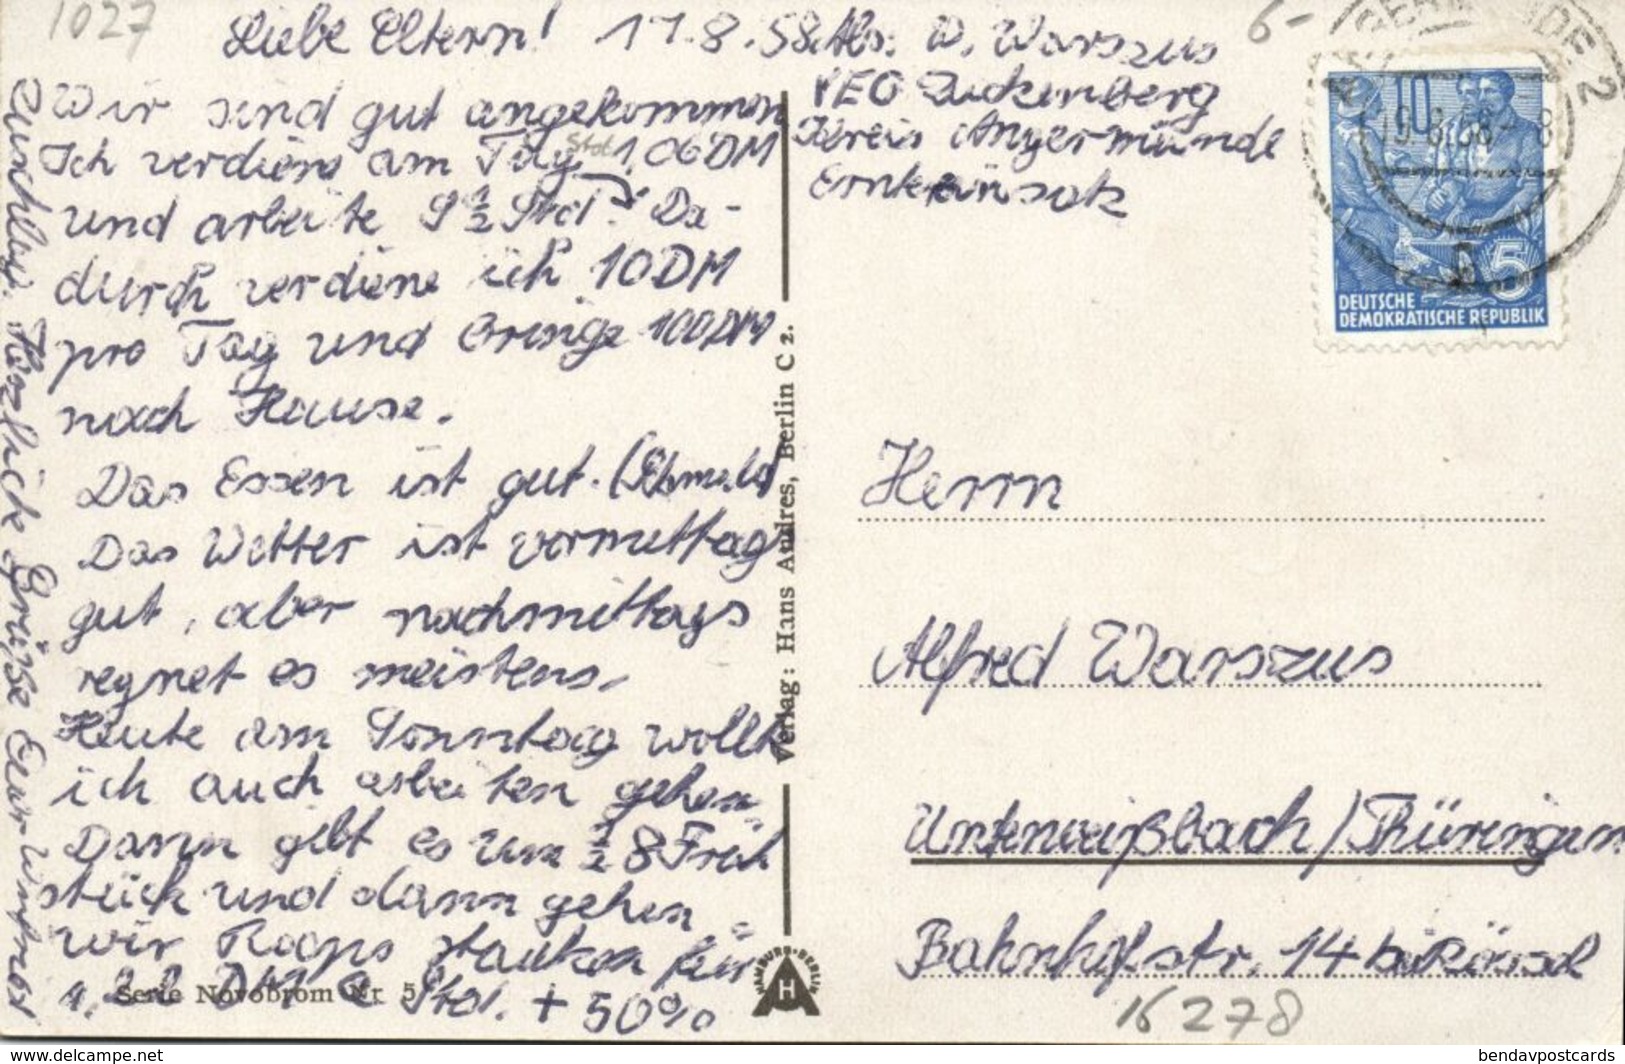 1027
Liebe Eltern! 17.8.58. Abs. W. Warszus
VEG Zuckenberg
Kreis Angermünde
Ernteeinsatz
6-
Wir sind gut angekommen
Ich verdiene am Tag Std. 1,06 DM
und arbeite 9 1/2 Std. Da-
durch verdiene ich 10 DM
pro Tag und bringe 100 DM
nach Hause.
Das Essen ist gut. (Schmalz)
Das Wetter ist vormittags
gut, aber nachmittags
regnet es meistens.
Heute am Sonntag wollt
ich auch arbeiten gehen.
Dann gibt es um 1/2 8 Früh
stück und dann gehen
wir Raps stauken für
DM Std. + 50%
Herzliche Grüße Euer Winfried
Serie Novobrom Nr. 5
Verlag: Hans Andres, Berlin C 2.
HAMBURG-BERLIN
H
10
5
DEUTSCHE
DEMOKRATISCHE REPUBLIK
19.8.58-8
2
Herrn
Alfred Warszus
Unterweißbach/Thüringen
Bahnhofstr. 14 bei Rössel
16278
bendavpostcards.ecwid.com
bendavpostcards